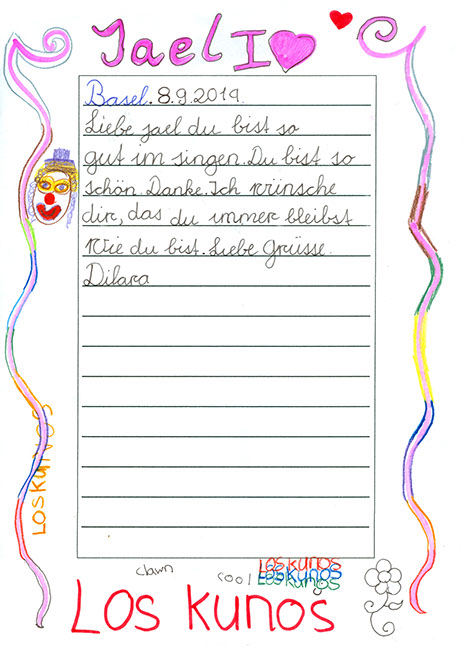 Jael I
Basel. 8.9.2019.
Liebe jael du bist so
gut im singen. Du bist so
schön. Danke. Ich wünsche
dir, das du immer bleibst
Wie du bist. Liebe Grüsse.
Dilara
Los kunos
clawn
cool
Los kunos
Los kunos
Los kunos
Los kunos